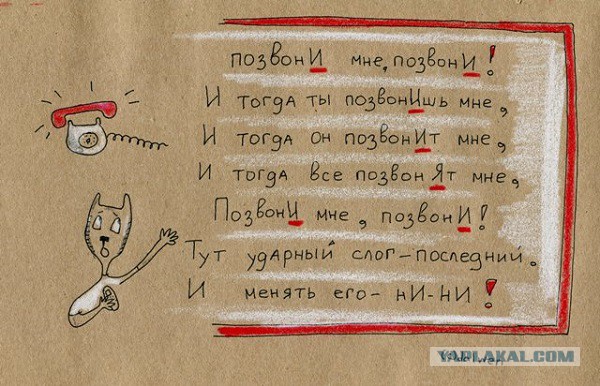 позвонИ мне, позвонИ!
И тогда ты позвонИшь мне,
И тогда он позвонИт мне,
И тогда все позвонЯт мне,
ПозвонИ мне, позвонИ!
Тут ударный слог-последний.
И менять его- нИ-нИ!
YAPLAKAL.COM